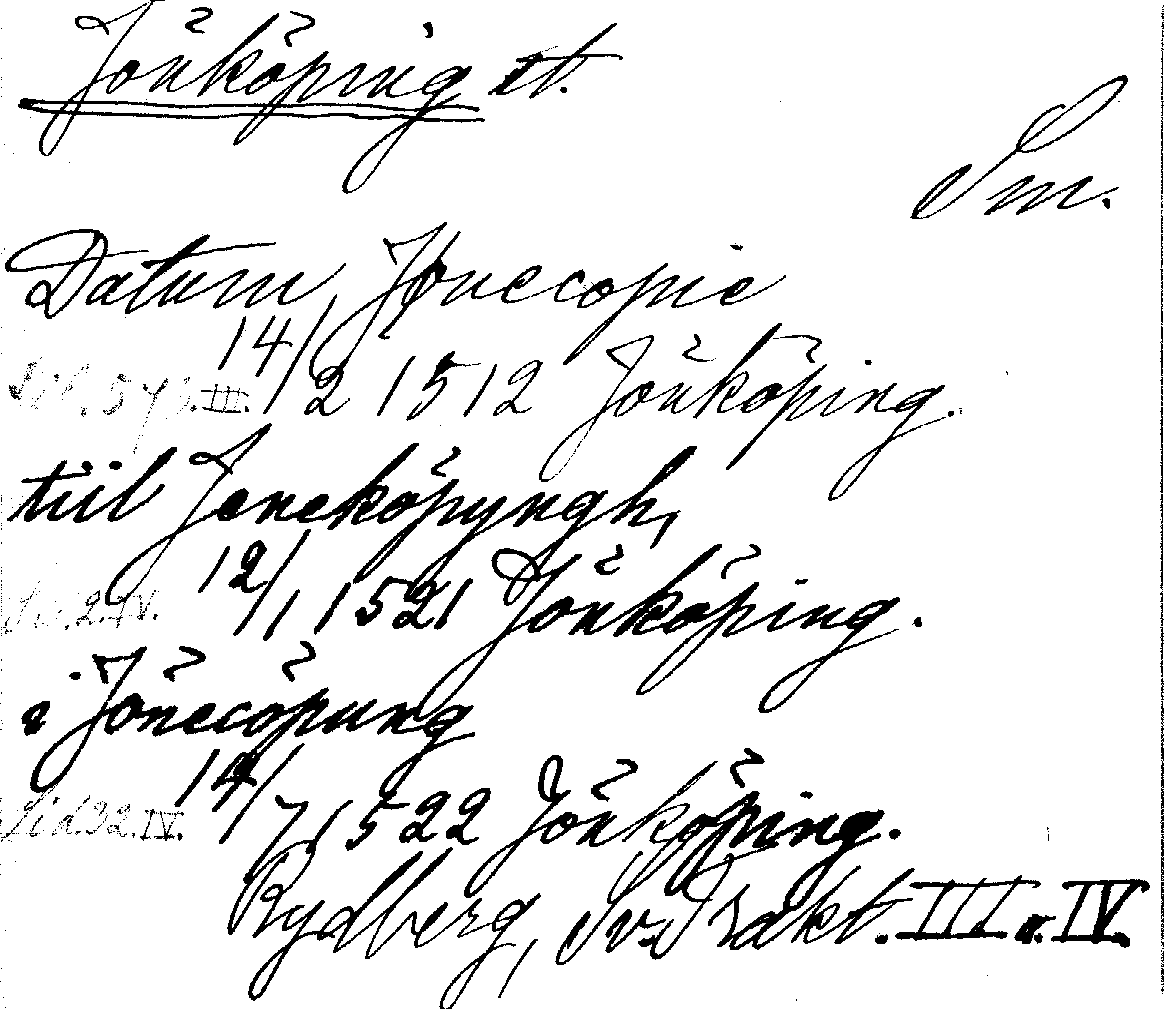 Jönköping st.
Sm.
Datum, Jönecopie
14/2 1512 Jönköping.
Sid. 575. III.
tiil Jeneköpyngh,
12/1 1521 Jönköping.
Sid. 2. IV.
i Jönecöpung
14/7 1522 Jönköping.
Sid. 32. IV.
Rydberg, Sv. Trakt. III o. IV.